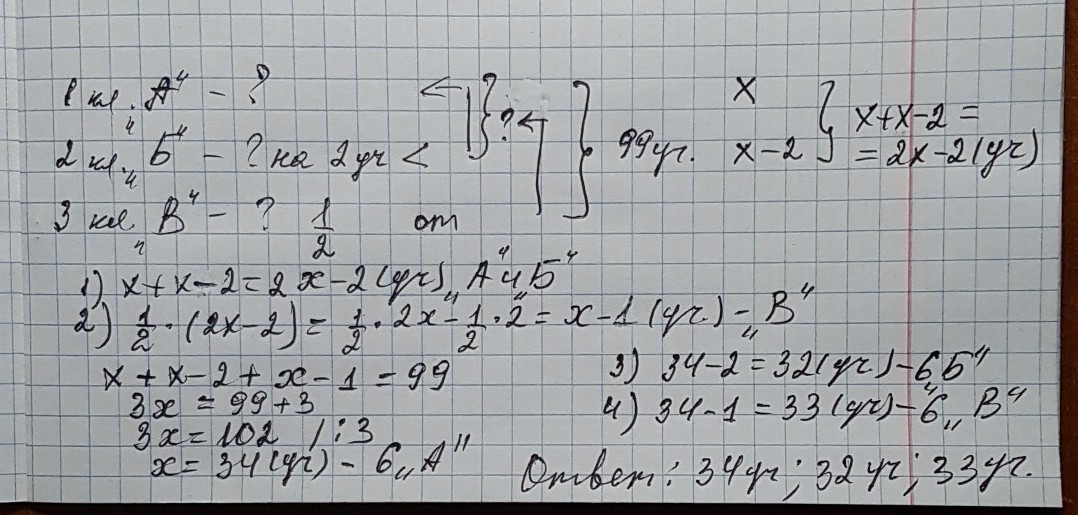 1 кл. „А" – ? x
2 кл. „Б" – ? на 2 уч < ? 99 уч. x – 2 x+x–2 =
= 2x–2 (уч)
3 кл „В" – ? 1/2 от
1) x+x–2 = 2x–2 (уч) „А" и „Б"
2) 1/2 · (2x–2) = 1/2 · 2x – 1/2 · 2 = x–1 (уч.) – „В"
x + x – 2 + x – 1 = 99
3x = 99+3
3x = 102 / :3
x = 34 (уч) – в „А"
3) 34–2 = 32 (уч) – в „Б"
4) 34–1 = 33 (уч) – в „В"
Ответ: 34 уч; 32 уч; 33 уч.